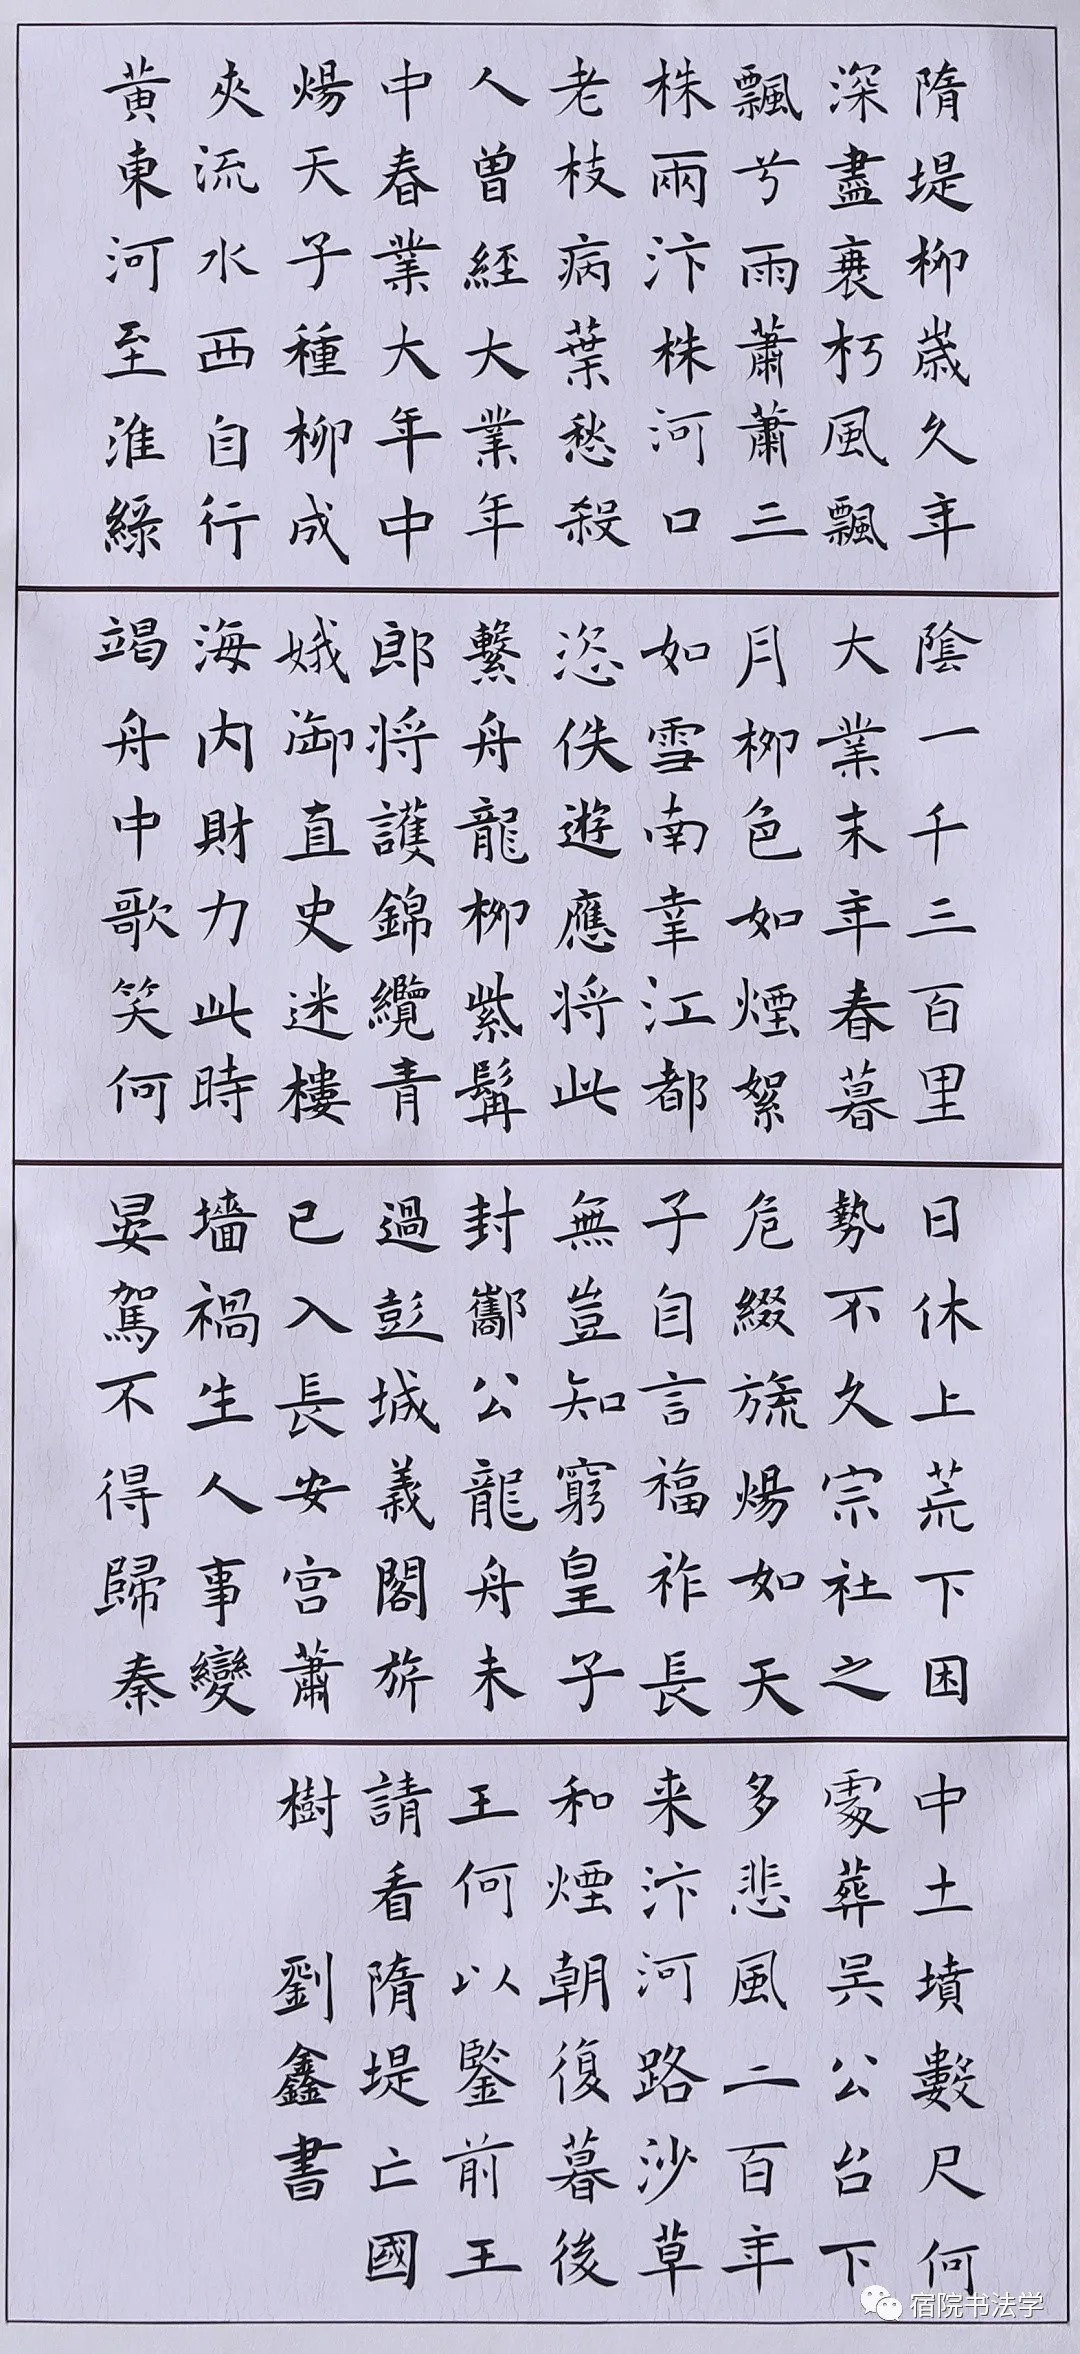 隋堤柳歲久年
深盡衰朽風飄
飄兮雨蕭蕭三
株兩汴株河口
老枝病葉愁殺
人曾經大業年
中春業大年中
煬天子種柳成
夾流水西自行
黃東河至淮綠
陰一千三百里
大業末年春暮
月柳色如煙絮
如雪南幸江都
恣佚遊應將此
繫舟龍柳紫髯
郎將護錦纜青
娥御直史迷樓
海内財力此時
竭舟中歌笑何
日休上荒下困
勢不久宗社之
危綴旒煬如天
子自言福祚長
無豈知窮皇子
封酅公龍舟未
過彭城義閣旂
已入長安宮蕭
墻禍生人事變
晏駕不得歸秦
中土墳數尺何
處葬吴公台下
多悲風二百年
来汴河路沙草
和煙朝復暮後
王何以鑒前王
請看隋堤亡國
樹 劉鑫書
宿院书法学